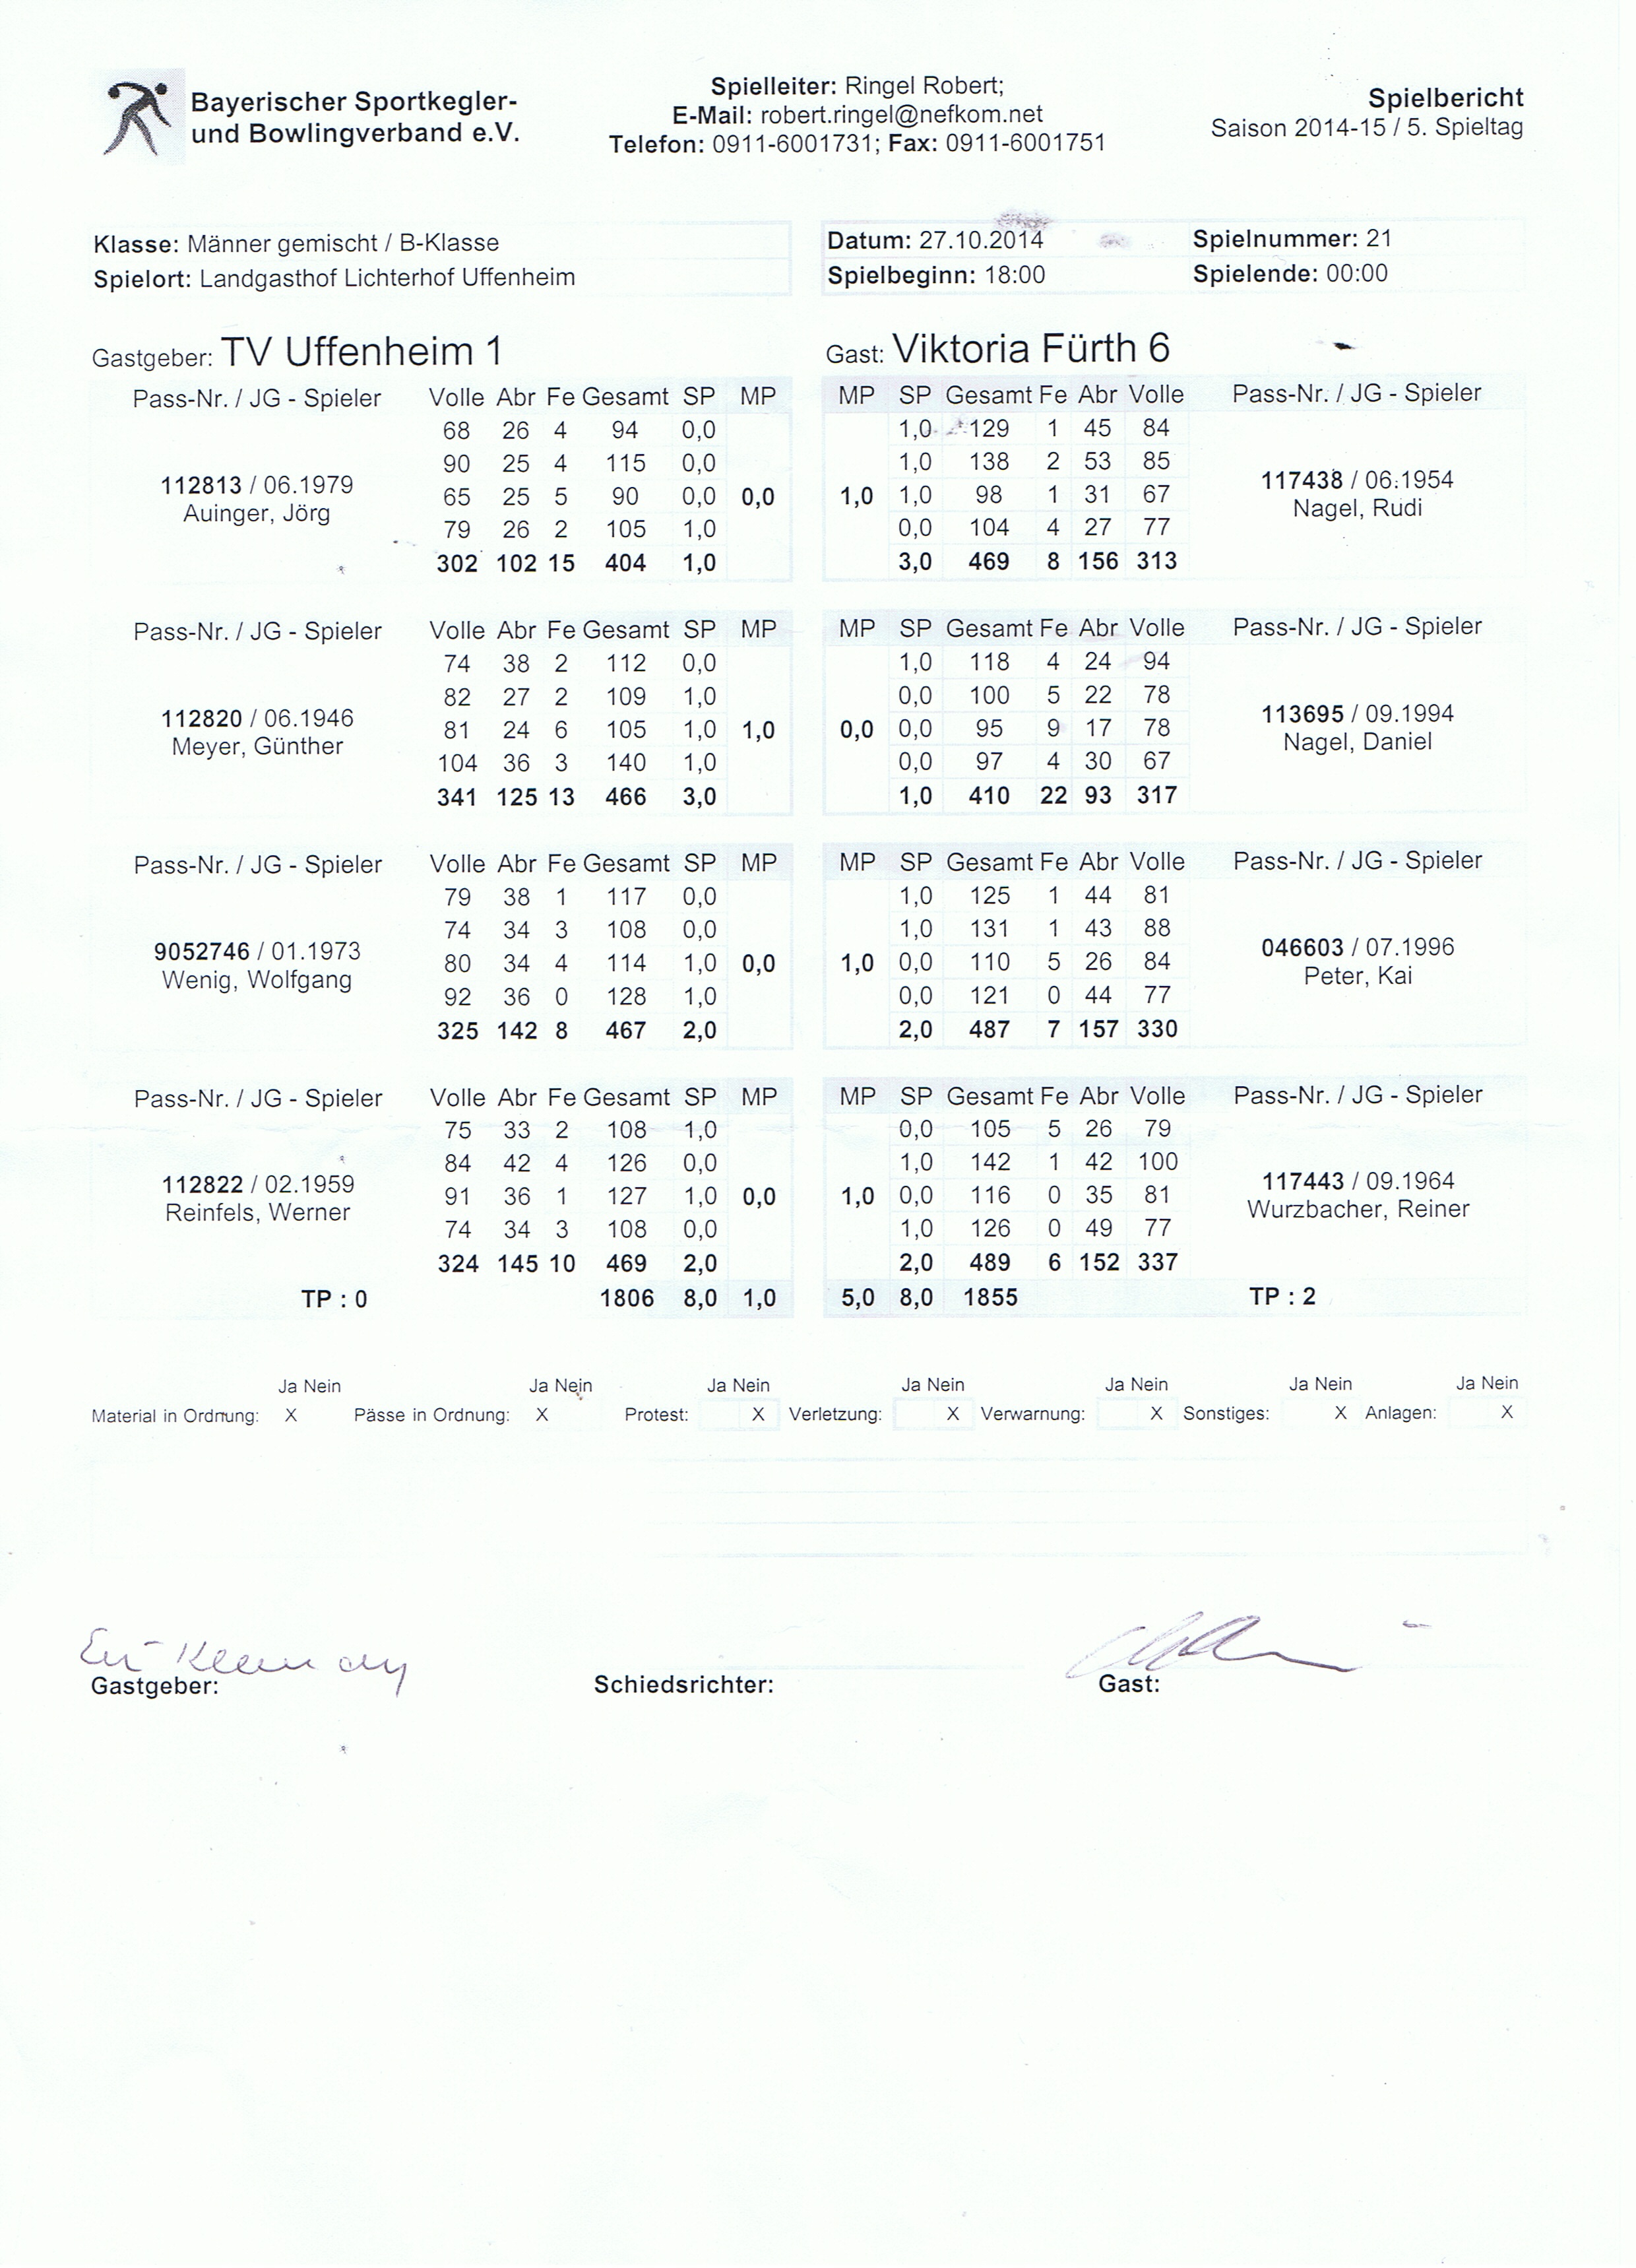 Bayerischer Sportkegler-
und Bowlingverband e.V.
Spielleiter: Ringel Robert;
E-Mail: robert.ringel@nefkom.net
Telefon: 0911-6001731; Fax: 0911-6001751
Spielbericht
Saison 2014-15 / 5. Spieltag
Klasse: Männer gemischt / B-Klasse
Spielort: Landgasthof Lichterhof Uffenheim
Datum: 27.10.2014 Spielnummer: 21
Spielbeginn: 18:00 Spielende: 00:00
Gastgeber: TV Uffenheim 1
Gast: Viktoria Fürth 6
Pass-Nr. / JG - Spieler Volle Abr Fe Gesamt SP MP MP SP Gesamt Fe Abr Volle Pass-Nr. / JG - Spieler
68 26 4 94 0,0 1,0 129 1 45 84
90 25 4 115 0,0 1,0 138 2 53 85
112813 / 06.1979 117438 / 06.1954
65 25 5 90 0,0 0,0 1,0 1,0 98 1 31 67
Auinger, Jörg Nagel, Rudi
79 26 2 105 1,0 0,0 104 4 27 77
302 102 15 404 1,0 3,0 469 8 156 313
Pass-Nr. / JG - Spieler Volle Abr Fe Gesamt SP MP MP SP Gesamt Fe Abr Volle Pass-Nr. / JG - Spieler
74 38 2 112 0,0 1,0 118 4 24 94
82 27 2 109 1,0 0,0 100 5 22 78
112820 / 06.1946 113695 / 09.1994
81 24 6 105 1,0 1,0 0,0 0,0 95 9 17 78
Meyer, Günther Nagel, Daniel
104 36 3 140 1,0 0,0 97 4 30 67
341 125 13 466 3,0 1,0 410 22 93 317
Pass-Nr. / JG - Spieler Volle Abr Fe Gesamt SP MP MP SP Gesamt Fe Abr Volle Pass-Nr. / JG - Spieler
79 38 1 117 0,0 1,0 125 1 44 81
74 34 3 108 0,0 1,0 131 1 43 88
9052746 / 01.1973 046603 / 07.1996
80 34 4 114 1,0 0,0 1,0 0,0 110 5 26 84
Wenig, Wolfgang Peter, Kai
92 36 0 128 1,0 0,0 121 0 44 77
325 142 8 467 2,0 2,0 487 7 157 330
Pass-Nr. / JG - Spieler Volle Abr Fe Gesamt SP MP MP SP Gesamt Fe Abr Volle Pass-Nr. / JG - Spieler
75 33 2 108 1,0 0,0 105 5 26 79
84 42 4 126 0,0 1,0 142 1 42 100
112822 / 02.1959 117443 / 09.1964
91 36 1 127 1,0 0,0 1,0 0,0 116 0 35 81
Reinfels, Werner Wurzbacher, Reiner
74 34 3 108 0,0 1,0 126 0 49 77
324 145 10 469 2,0 2,0 489 6 152 337
TP : 0 1806 8,0 1,0 5,0 8,0 1855 TP : 2
Ja Nein Ja Nein Ja Nein Ja Nein Ja Nein Ja Nein Ja Nein
Material in Ordnung: X Pässe in Ordnung: X Protest: X Verletzung: X Verwarnung: X Sonstiges: X Anlagen: X
Gastgeber: Schiedsrichter: Gast: